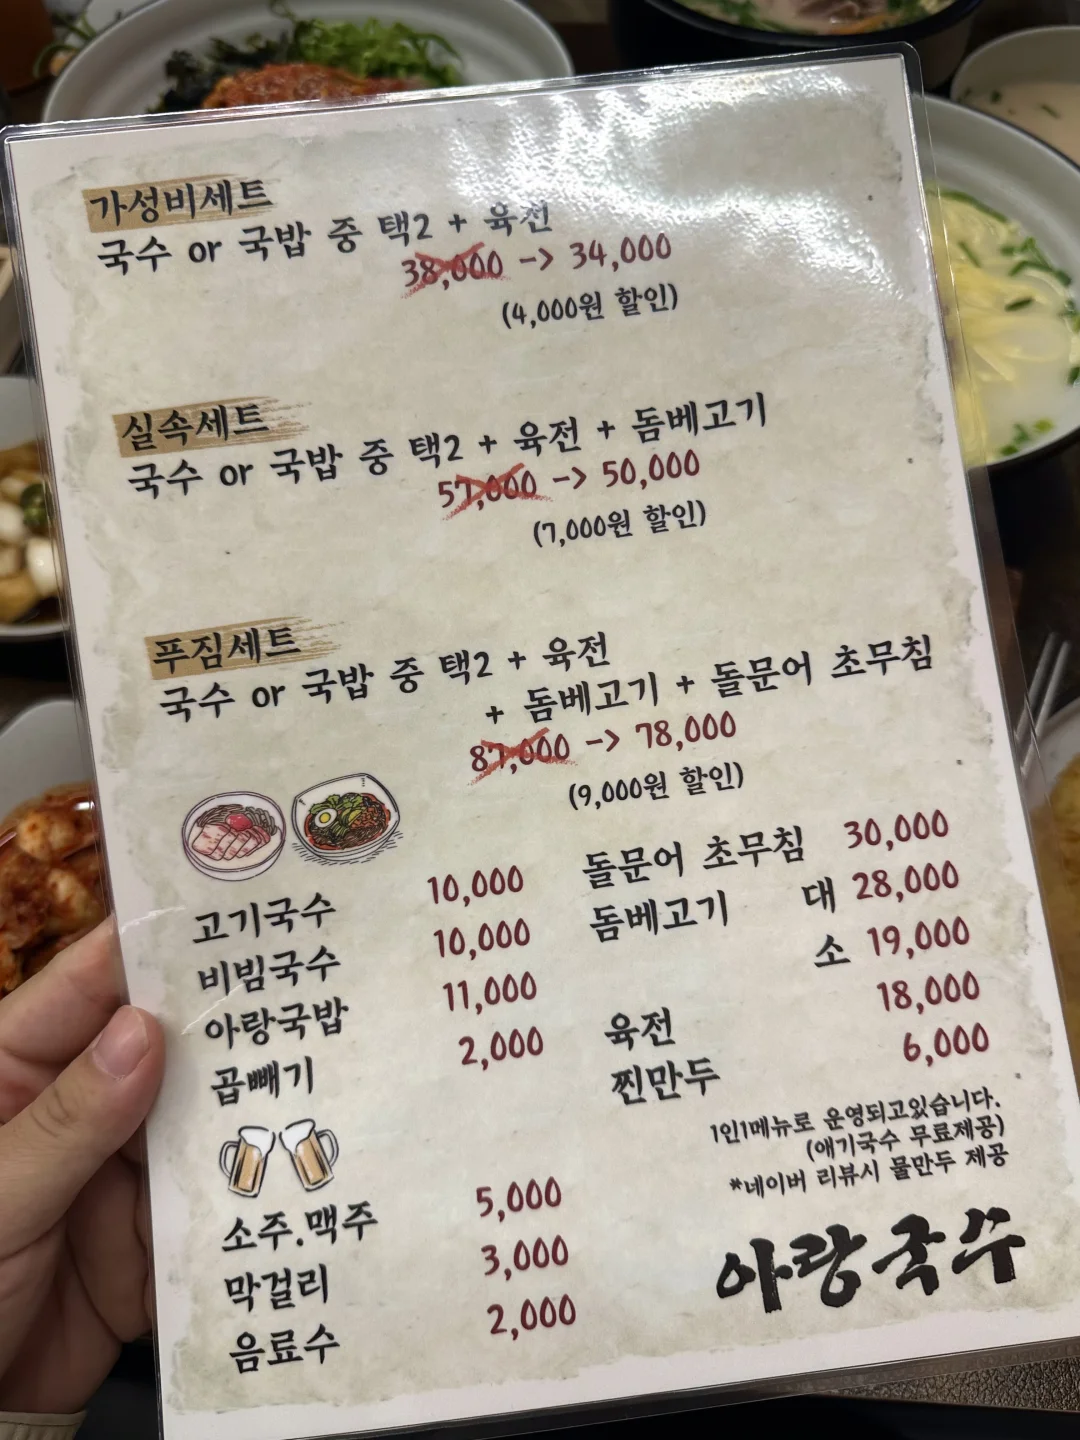 가성비세트
국수 or 국밥 중 택2 + 육전
38,000 -> 34,000
(4,000원 할인)
실속세트
국수 or 국밥 중 택2 + 육전 + 돔베고기
57,000 -> 50,000
(7,000원 할인)
푸짐세트
국수 or 국밥 중 택2 + 육전
+ 돔베고기 + 돌문어 초무침
87,000 -> 78,000
(9,000원 할인)
고기국수 10,000
비빔국수 10,000
아랑국밥 11,000
곱빼기 2,000
돌문어 초무침 30,000
돔베고기 대 28,000
소 19,000
육전 18,000
찐만두 6,000
소주.맥주 5,000
막걸리 3,000
음료수 2,000
1인1메뉴로 운영되고있습니다.
(애기국수 무료제공)
*네이버 리뷰시 물만두 제공
아랑국수